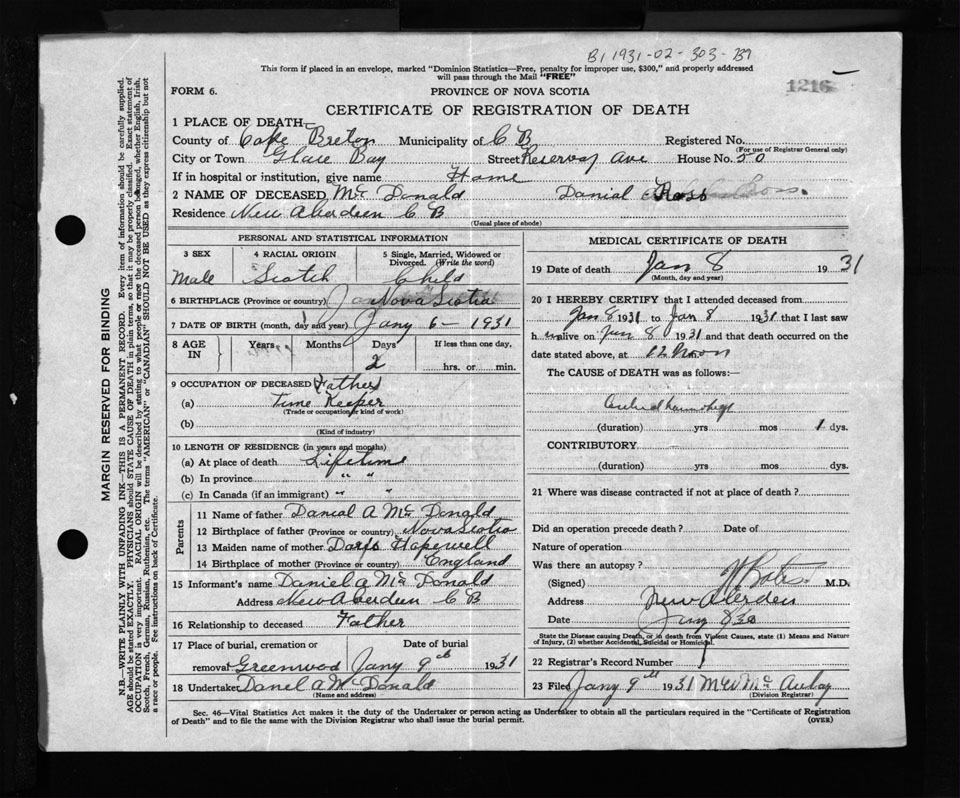 B1 1931-02-303-
This form if placed in an envelope, marked "Dominion Statistics—Free, penalty for improper use, $300," and properly addressed
will pass through the Mail "FREE"
1216
FORM 6.
PROVINCE OF NOVA SCOTIA
CERTIFICATE OF REGISTRATION OF DEATH
1 PLACE OF DEATH—
County of Cape Breton Municipality of C B Registered No.
(For use of Registrar General only)
City or Town Glace Bay Street Reserve Ave House No. 50
If in hospital or institution, give name Home
2 NAME OF DECEASED Mc Donald Danial Ross
Residence New Aberdeen C B
(Usual place of abode)
PERSONAL AND STATISTICAL INFORMATION
3 SEX 4 RACIAL ORIGIN 5 Single, Married, Widowed or Divorced. (Write the word)
Male Scotch Child
6 BIRTHPLACE (Province or country) Nova Scotia
7 DATE OF BIRTH (month, day and year) Jany 6 - 1931
8 AGE IN Years Months Days If less than one day,
2 hrs. or min.
9 OCCUPATION OF DECEASED Fathers
(a) Time Keeper
(Trade or occupation or kind of work)
(b)
(Kind of industry)
10 LENGTH OF RESIDENCE (in years and months)
(a) At place of death Lifetime
(b) In province " "
(c) In Canada (if an immigrant) " "
Parents
11 Name of father Danial A Mc Donald
12 Birthplace of father (Province or country) Nova Scotia
13 Maiden name of mother Hapewell
14 Birthplace of mother (Province or country) England
15 Informant's name Daniel A Mc Donald
Address New Aberdeen C B
16 Relationship to deceased Father
17 Place of burial, cremation or Date of burial
removal Greenwood Jany 9th 1931
18 Undertaker Danel A Mc Donald
(Name and address)
MEDICAL CERTIFICATE OF DEATH
19 Date of death Jan 8 1931
(Month, day and year)
20 I HEREBY CERTIFY that I attended deceased from
Jan 8 1931 to Jan 8 1931 that I last saw
h alive on Jan 8 1931 and that death occurred on the
date stated above, at 12 Noon
The CAUSE of DEATH was as follows:—
(duration) yrs mos 1 dys.
CONTRIBUTORY
(duration) yrs mos dys.
21 Where was disease contracted if not at place of death?
Did an operation precede death? Date of
Nature of operation
Was there an autopsy?
(Signed) M.D.
Address New Aberdeen
Date
State the Disease causing Death, or in death from Violent Causes, state (1) Means and Nature
of Injury, (2) whether Accidental, Suicidal or Homicidal.
22 Registrar's Record Number
23 Filed Jany 9th 1931
(Division Registrar)
Sec. 46—Vital Statistics Act makes it the duty of the Undertaker or person acting as Undertaker to obtain all the particulars required in the "Certificate of Registration
of Death" and to file the same with the Division Registrar who shall issue the burial permit.
(OVER)
MARGIN RESERVED FOR BINDING
N.B.—WRITE PLAINLY WITH UNFADING INK—THIS IS A PERMANENT RECORD. Every item of information should be carefully supplied.
AGE should be stated EXACTLY. PHYSICIANS should STATE CAUSE OF DEATH in plain terms, so that it may be properly classified. Exact statement of
OCCUPATION is very important. RACIAL ORIGIN will be described by stating to what people or race the deceased person belonged, whether English, Irish,
Scotch, French, German, Russian, Ruthenian, etc. The terms "AMERICAN" or "CANADIAN" SHOULD NOT BE USED as they express citizenship but not
a race or people. See instructions on back of Certificate.